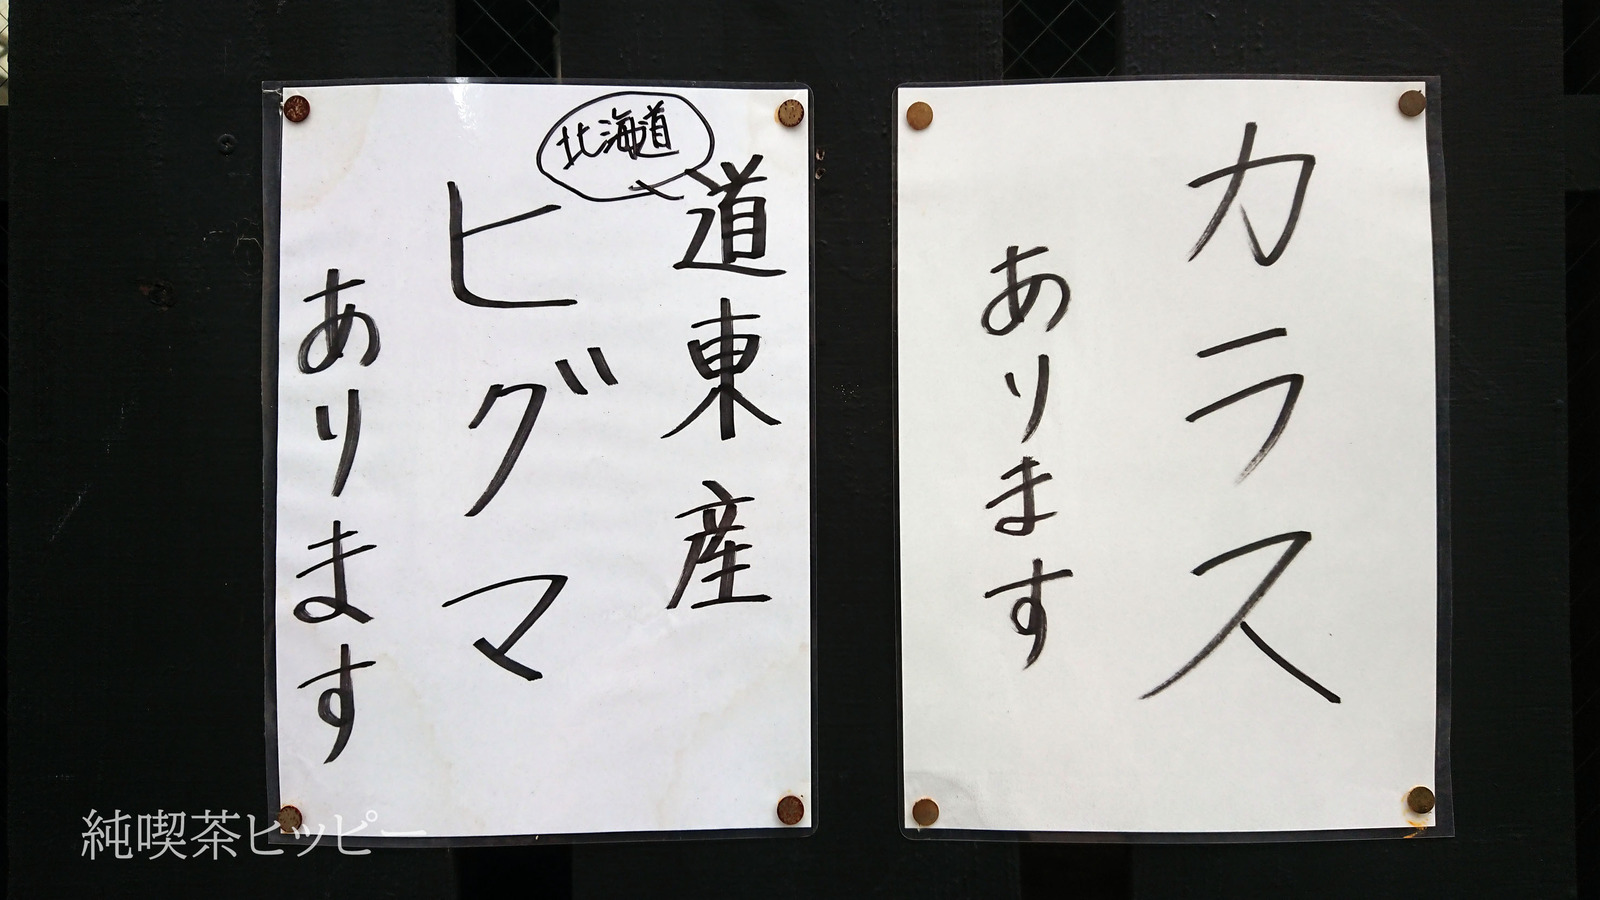 カラス
あります
北海道
道東産
ヒグマ
あります
純喫茶ヒッピー